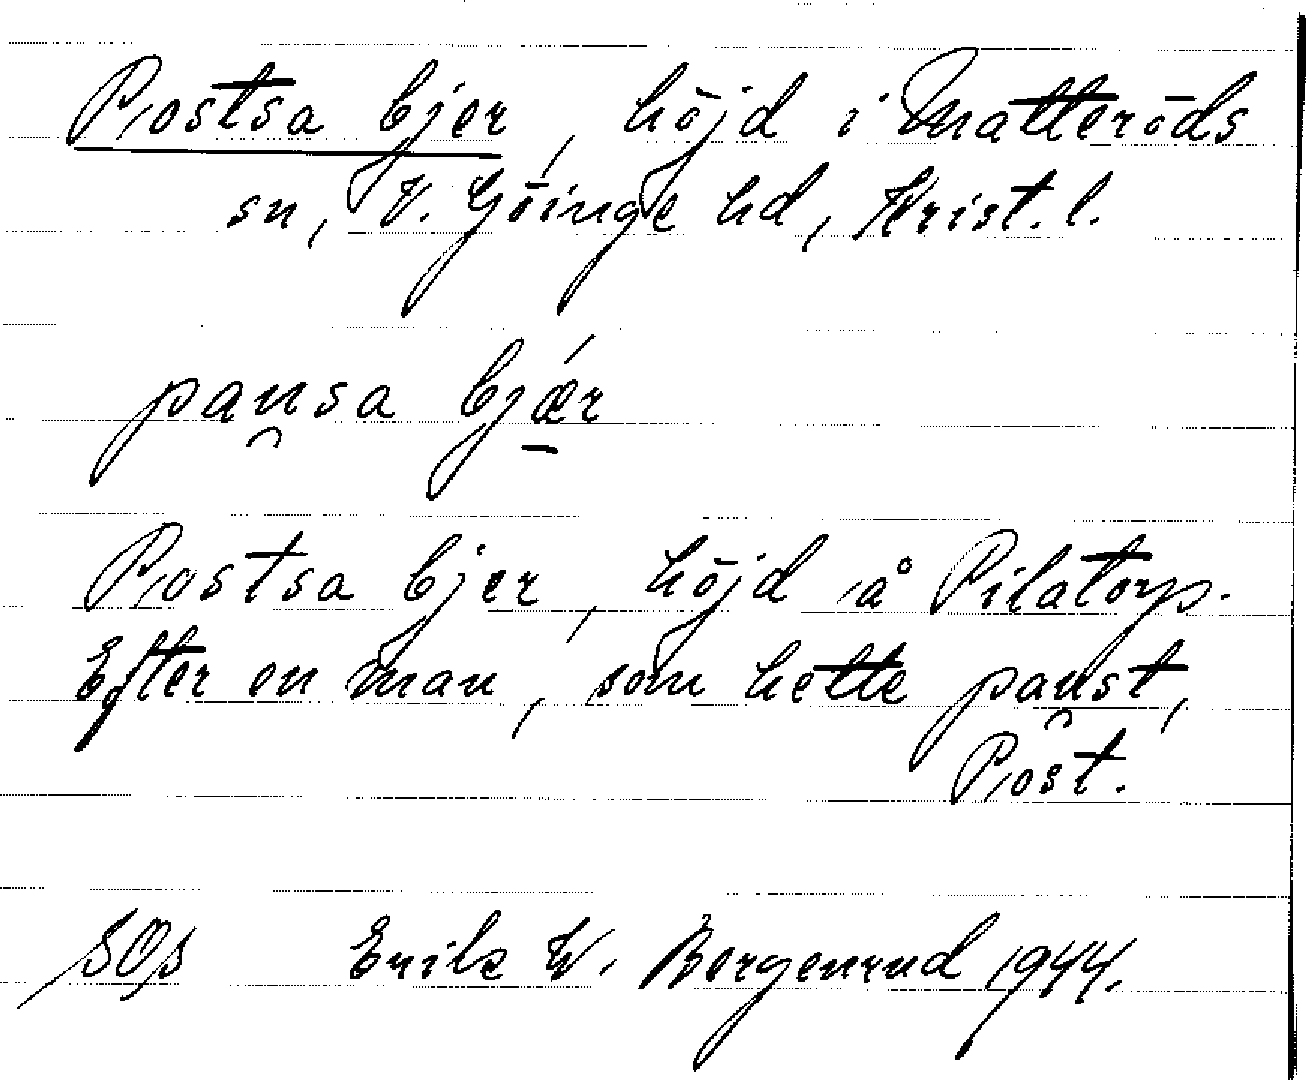 Postsa bjer, höjd i Matteröds
sn, V. Göinge hd, Krist. l.
pau̯sa bjǽ̠r
Postsa bjer, höjd å Pilatorp.
Efter en man, som hette pau̯st,
Post.
SOs Erik W. Bergenrud 1944.